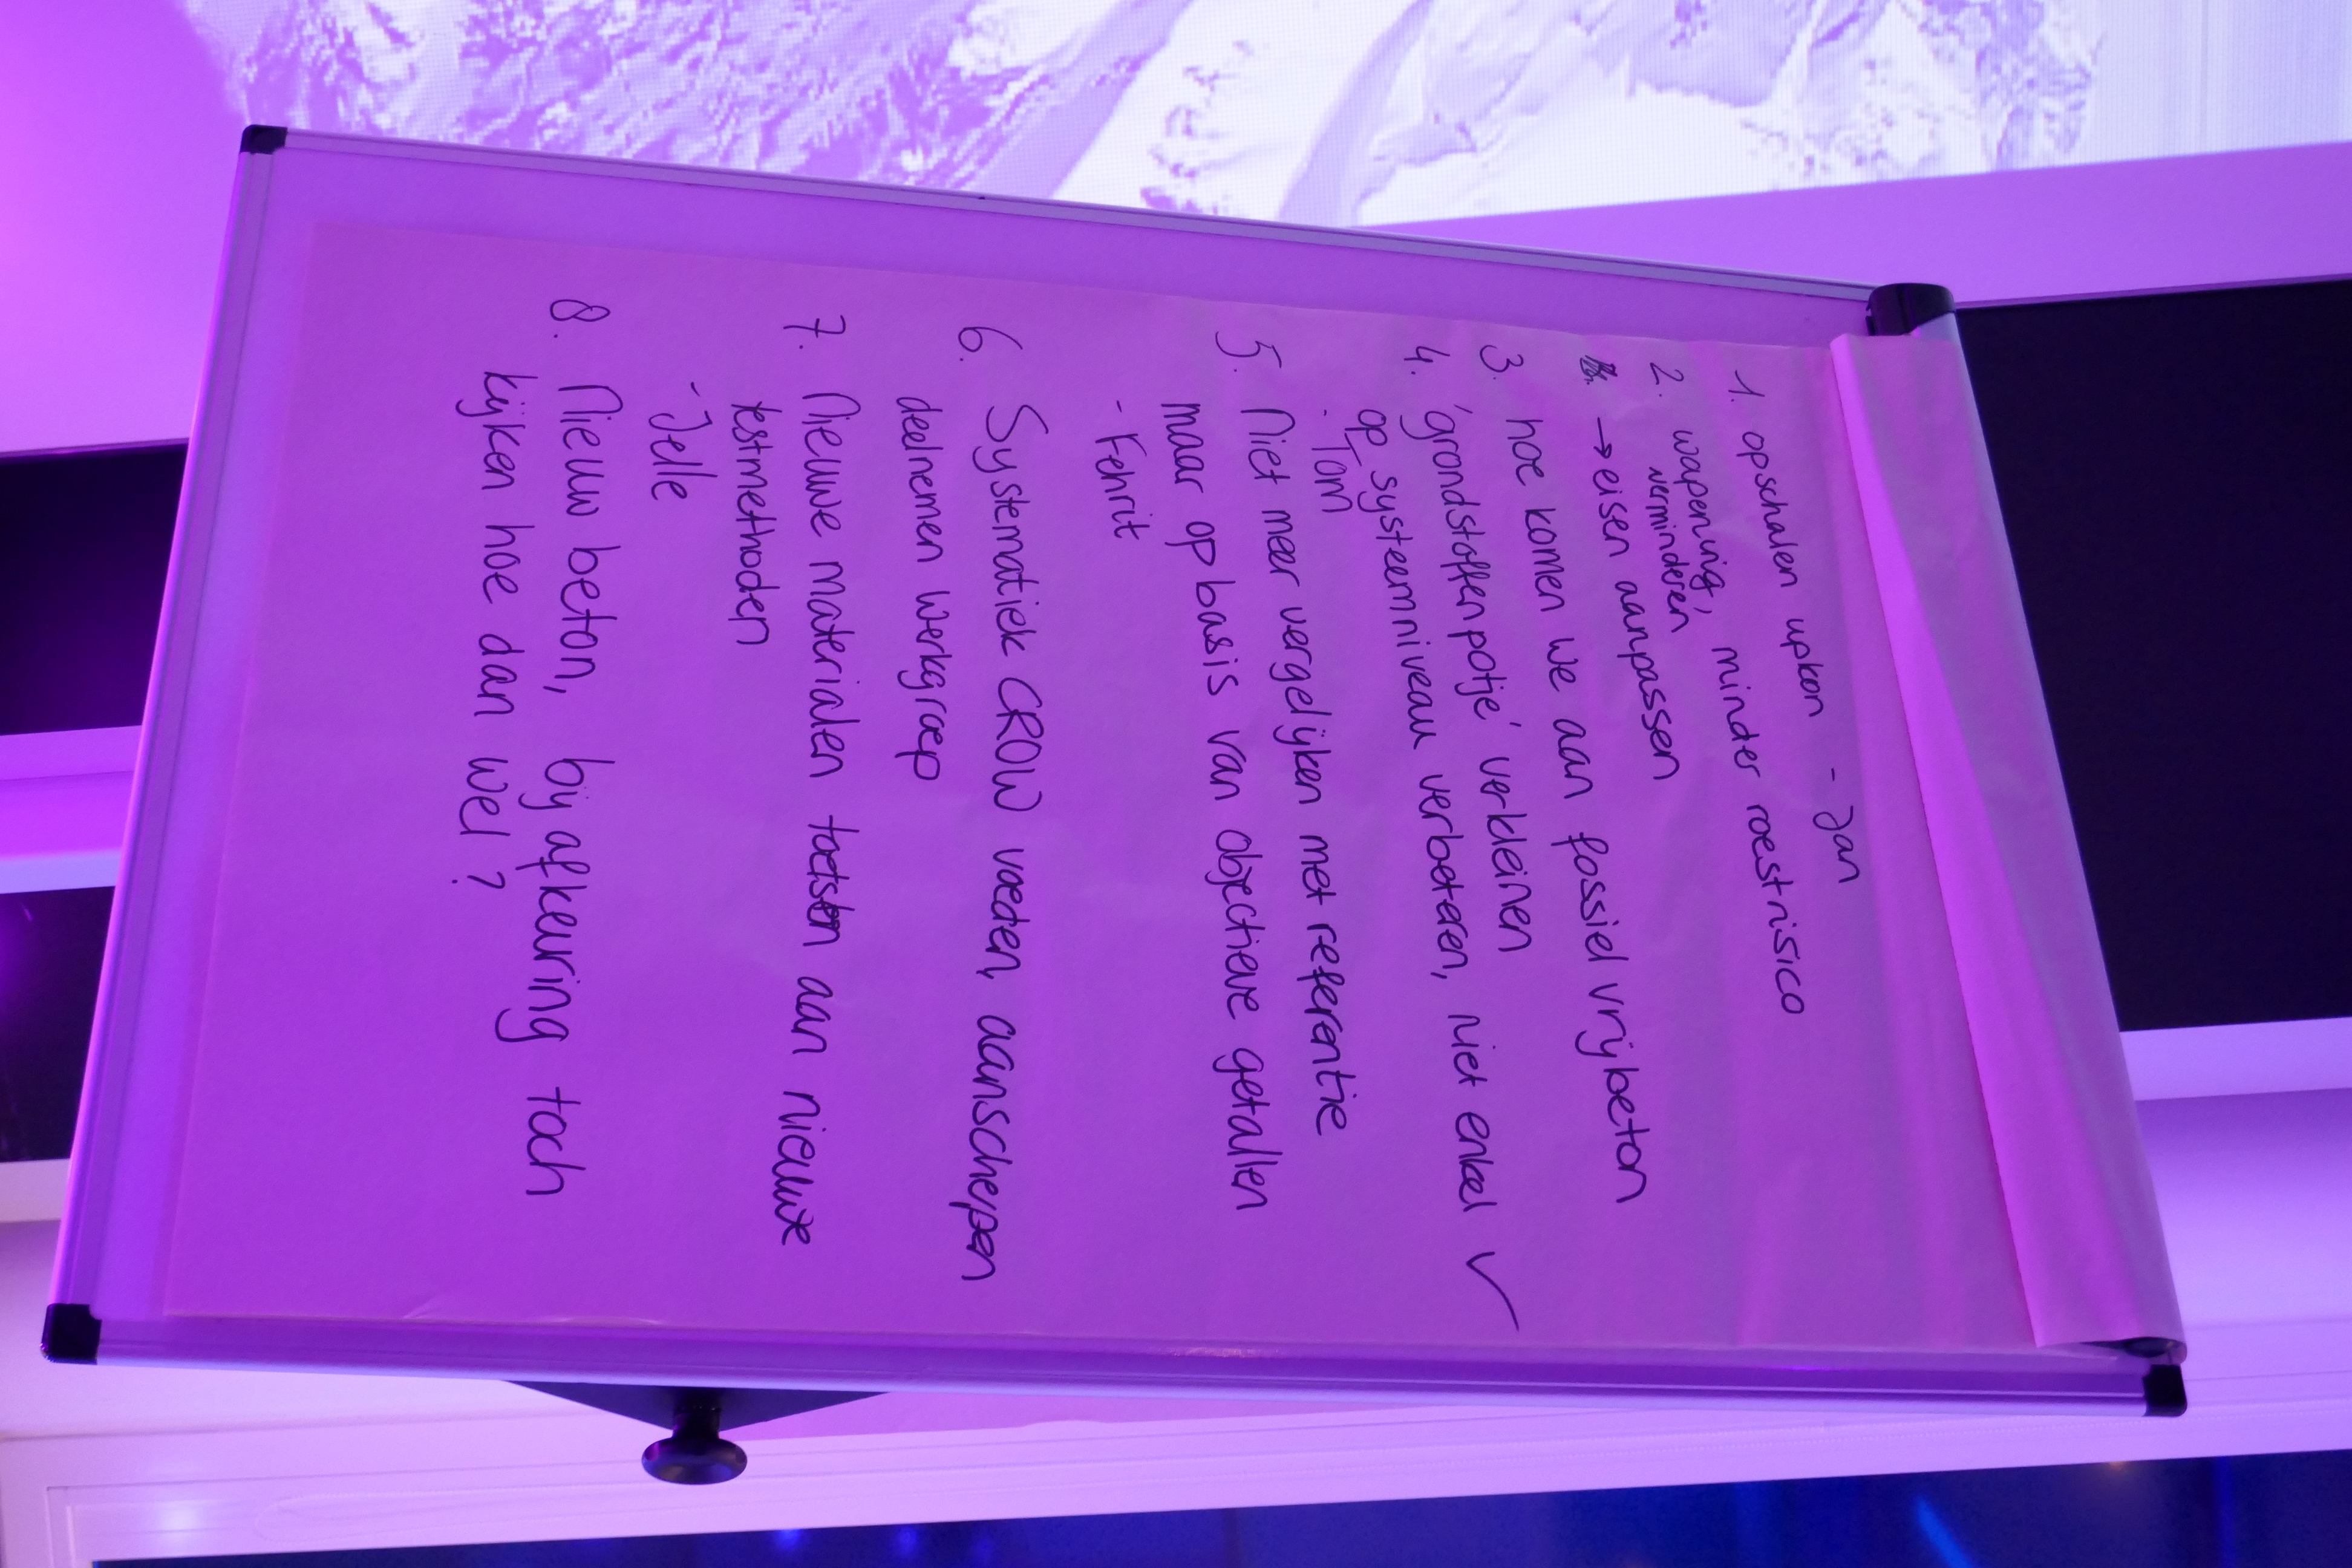 1. opschalen upkon - Jan
2. wapening, minder roestrisico
verminderen
→ eisen aanpassen
3. hoe komen we aan fossiel vrij beton
4. 'grondstoffenpotje' verkleinen
op systeemniveau verbeteren, niet enkel ✓
- Tom
5. Niet meer vergelijken met referentie
maar op basis van objectieve getallen
- Fehrit
6. Systematiek CROW voeden, aanscherpen
deelnemen werkgroep
7. Nieuwe materialen toetsen aan nieuwe
testmethoden
- Jelle
8. Nieuw beton, bij afkeuring toch
kijken hoe dan wel?